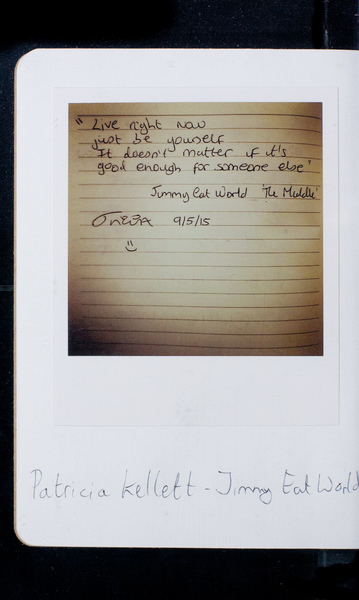 "Live right now
just be yourself
It doesn't matter if it's
good enough for someone else"
Jimmy Eat World 'The Middle'
9/5/15
Patricia Kellett - Jimmy Eat World